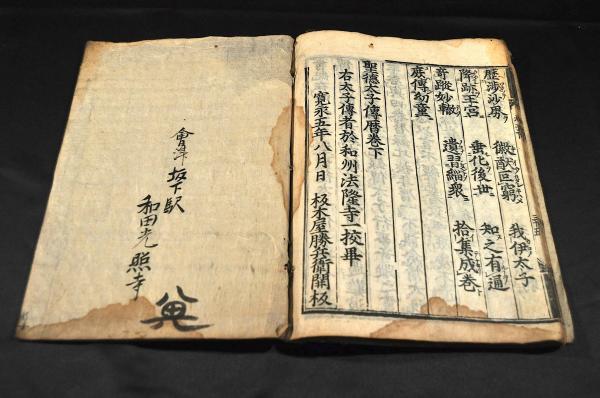 歴渉沙界　徽猷叵窮　我伊太子
降跡王宮　垂化後世　知之有通
奇蹤妙轍　遺習緇衆　拾集成巻
庭傳幼童
聖徳太子傳暦巻下
右太子傳者於和州法隆寺一挍畢
寛永五年八月日　板木屋勝兵衛開板
會津坂下駅
和田光照寺